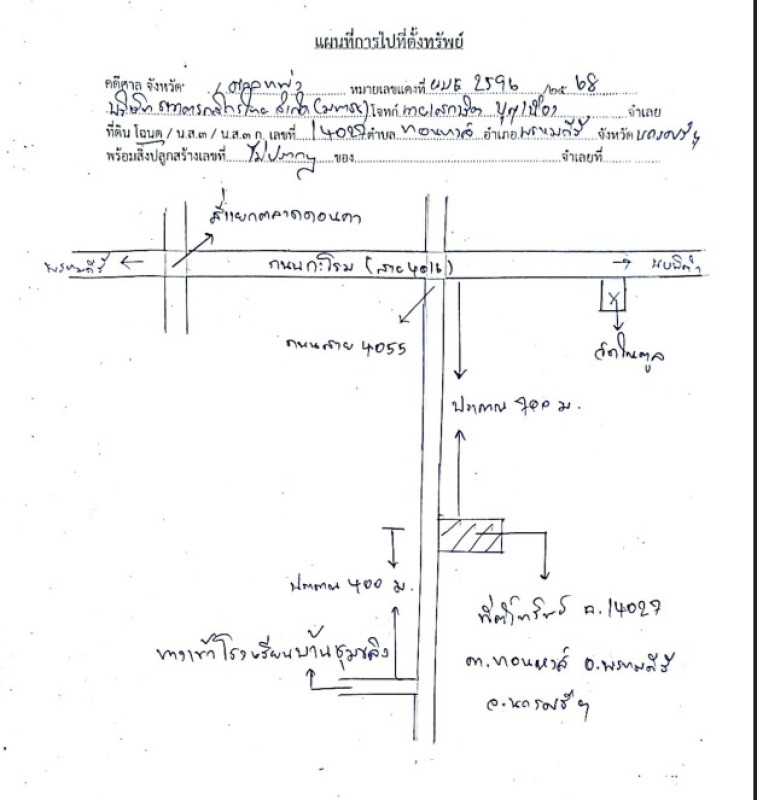 แผนที่การไปที่ตั้งทรัพย์
คดีศาล จังหวัด หมายเลขแดงที่ ผบE 2596 /๒๕ 68
บริษัท ธนาคารกสิกรไทย จำกัด (มหาชน) โจทก์ จำเลย
ที่ดิน โฉนด / น.ส.๓ / น.ส.๓ ก. เลขที่ 14027 ตำบล ทอนหงส์ อำเภอ พรหมคีรี จังหวัด นครศรีฯ
พร้อมสิ่งปลูกสร้างเลขที่ ไม่ปรากฏ ของ จำเลยที่
สี่แยกตลาดดอนคา
พรหมคีรี ถนนกะโรม (สาย 4016) นบพิตำ
ถนนสาย 4055
วัดในตูล
ประมาณ 700 ม.
ประมาณ 400 ม.
ที่ตั้งทรัพย์ ฉ. 14027
ทางเข้าโรงเรียนบ้านชุมขลิง
ต.ทอนหงส์ อ.พรหมคีรี
จ.นครศรีฯ